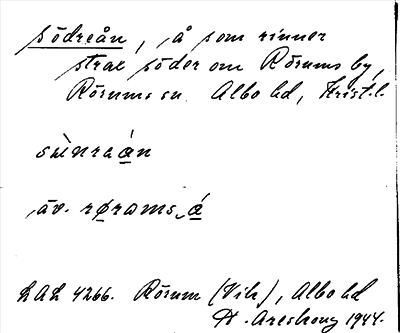 södreån, å som rinner
strax söder om Rörums by,
Rörums sn Albo hd, Krist. l.
äv. rørams á
LAL 4266. Rörum (Vik), Albo hd
H. Areskoug 1944.